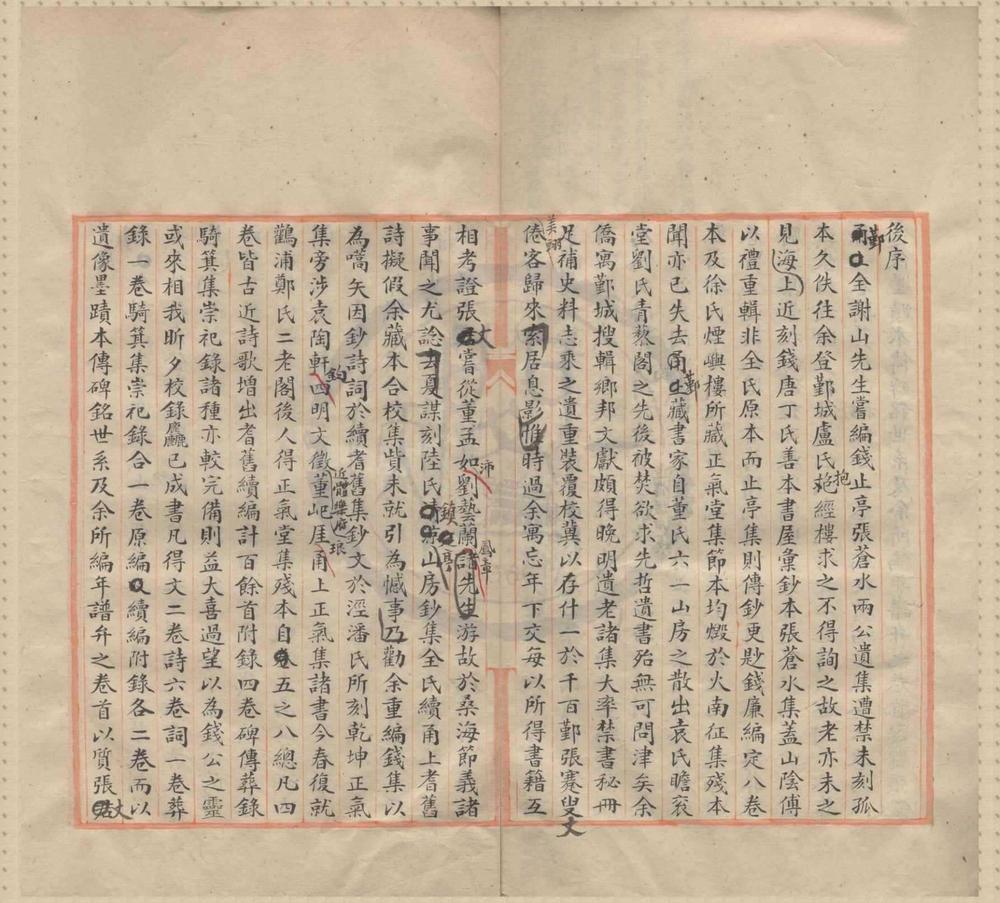 後序
鄞全謝山先生嘗編錢止亭張蒼水兩公遺集遭禁未刻孤
本久佚往余登鄞城盧氏抱經樓求之不得詢之故老亦未之
見海上近刻錢唐丁氏善本書屋彙鈔本張蒼水集蓋山陰傅
以禮重輯非全氏原本而止亭集則傳鈔更尠錢廉編定八卷
本及徐氏煙嶼樓所藏正氣堂集節本均燬於火南征集殘本
聞亦已失去鄞藏書家自董氏六一山房之散出袁氏瞻袞
堂劉氏青藜閣之先後被焚欲求先哲遺書殆無可問津矣余
僑寓鄞城搜輯鄉邦文獻頗得晚明遺老諸集大率禁書秘冊
足補史料志乘之遺重裝覆校冀以存什一於千百鄞張蹇叟丈
美翊
倦客歸來索居息影惟時過余寓忘年下交每以所得書籍互
相考證張丈嘗從董孟如沛劉藝蘭鳳章諸先生游故於桑海節義諸
事聞之尤諗去夏謀刻陸氏鎮亭山房鈔集全氏續甬上耆舊
詩擬假余藏本合校集貲未就引為憾事乃勸余重編錢集以
為嚆矢因鈔詩詞於續耆舊集鈔文於涇潘氏所刻乾坤正氣
集旁涉袁陶軒鈞四明文徵董屺厓琅甬上正氣集諸書今春復就
鸛浦鄭氏二老閣後人得正氣堂集殘本自卷五之八總凡四
卷皆古近詩歌增出耆舊續編計百餘首附錄四卷碑傳葬錄
騎箕集崇祀錄諸種亦較完備則益大喜過望以為錢公之靈
或來相我昕夕校錄麤已成書凡得文二卷詩六卷詞一卷葬
錄一卷騎箕集崇祀錄合一卷原編續編附錄各二卷而以
遺像墨蹟本傳碑銘世系及余所編年譜弁之卷首以質張丈